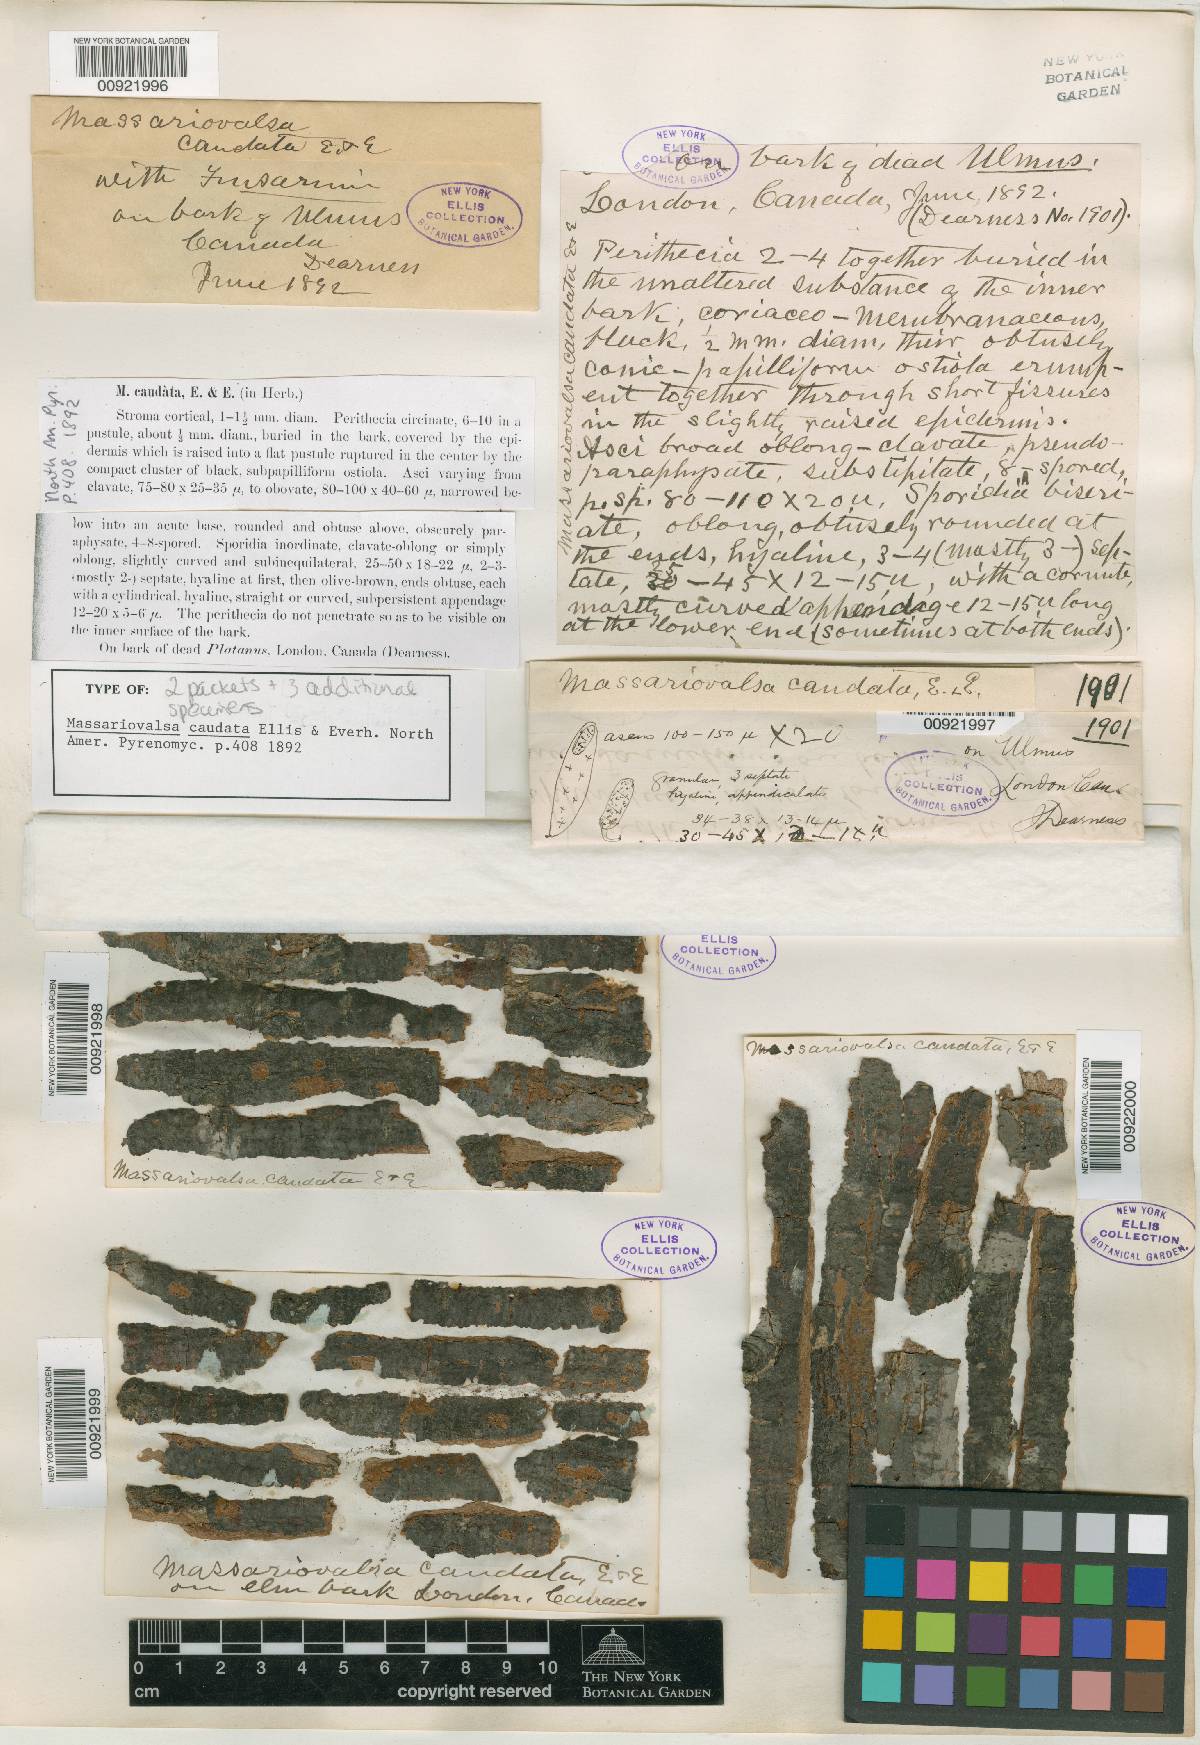 NEW YORK BOTANICAL GARDEN
00921996
NEW YORK
BOTANICAL
GARDEN
Massariovalsa
caudata E & E
with Fusarium
on bark of Ulmus
Canada
Dearness
June 1892
NEW YORK
ELLIS
COLLECTION
BOTANICAL GARDEN.
NEW YORK
ELLIS
COLLECTION
BOTANICAL GARDEN.
Massariovalsa caudata E & E
On bark of dead Ulmus.
London, Canada, June, 1892.
(Dearness No. 1901).
Perithecia 2–4 together buried in
the unaltered substance of the inner
bark, coriaceo-membranaceous,
black, ½ mm. diam, their obtusely
conic-papilliform ostiola erump-
ent together through short fissures
in the slightly raised epidermis.
Asci broad oblong-clavate, pseudo-
paraphysate, substipitate, 8-spored,
p. sp. 80–110 x 20 u, Sporidia biseri-
ate, oblong, obtusely rounded at
the ends, hyaline, 3–4 (mostly 3-) sep-
tate, 35–45 x 12–15 u, with a cornute,
mostly curved appendage 12–15 u long
at the lower end (sometimes at both ends).
North Am. Pyr.
P. 408. 1892
M. caudàta, E. & E. (in Herb.)
Stroma cortical, 1–1½ mm. diam. Perithecia circinate, 6–10 in a
pustule, about ½ mm. diam., buried in the bark, covered by the epi-
dermis which is raised into a flat pustule ruptured in the center by the
compact cluster of black, subpapilliform ostiola. Asci varying from
clavate, 75–80 x 25–35 µ, to obovate, 80–100 x 40–60 µ, narrowed be-
low into an acute base, rounded and obtuse above, obscurely par-
aphysate, 4–8-spored. Sporidia inordinate, clavate-oblong or simply
oblong, slightly curved and subinequilateral, 25–50 x 18–22 µ, 2–3-
(mostly 2-) septate, hyaline at first, then olive-brown, ends obtuse, each
with a cylindrical, hyaline, straight or curved, subpersistent appendage
12–20 x 5–6 µ. The perithecia do not penetrate so as to be visible on
the inner surface of the bark.
On bark of dead Platanus, London, Canada (Dearness).
TYPE OF: 2 packets + 3 additional
specimens
Massariovalsa caudata Ellis & Everh. North
Amer. Pyrenomyc. p.408 1892
Massariovalsa caudata, E. & E. 1901
NEW YORK BOTANICAL GARDEN
00921997
1901
ascus 100–150 µ x 20
granular, 3 septate
hyaline, appendiculate
34–38 x 13–14 µ
30–45 x 12–15 µ
on Ulmus
London Can.
J Dearness
ELLIS
COLLECTION
BOTANICAL GARDEN.
ELLIS
COLLECTION
BOTANICAL GARDEN.
NEW YORK BOTANICAL GARDEN
00921998
Massariovalsa caudata E & E
NEW YORK
ELLIS
COLLECTION
BOTANICAL GARDEN.
NEW YORK BOTANICAL GARDEN
00921999
Massariovalsa caudata, E & E
on elm bark London, Canada
Massariovalsa caudata, E & E
NEW YORK BOTANICAL GARDEN
00922000
NEW YORK
ELLIS
COLLECTION
BOTANICAL GARDEN.
0 1 2 3 4 5 6 7 8 9 10
cm
copyright reserved
THE NEW YORK
BOTANICAL GARDEN